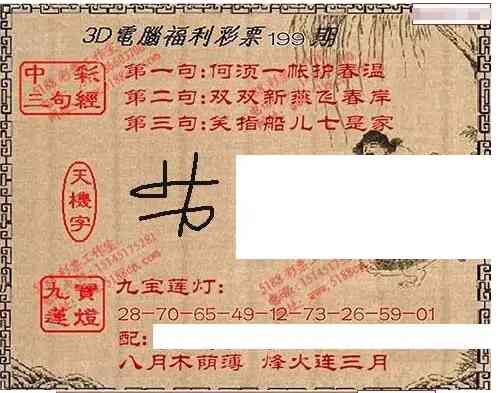 3D電腦福利彩票199期
中彩三句經
第一句:何须一帐护春温
第二句:双双新燕飞春岸
第三句:笑指船儿七是家
天機字
九寶蓮燈
九宝莲灯:
28-70-65-49-12-73-26-59-01
配:
八月木荫薄 烽火连三月